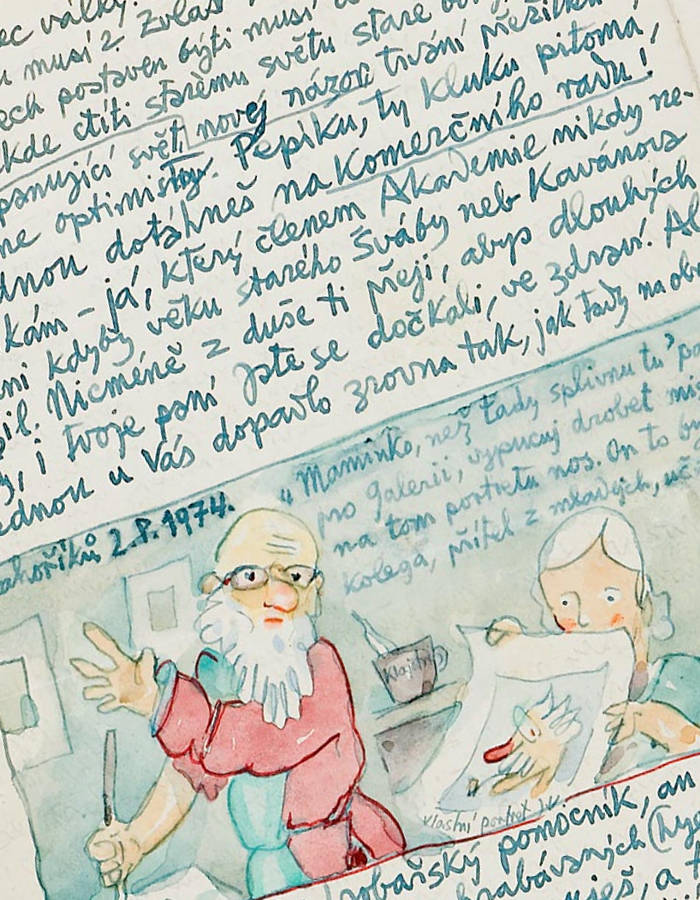 ec války.
u musí? Zvlášť
ech postaven býti musí
kde ctíti starému světu staré
panující svět, nový názor trvání přežitků
me optimisty. Pepíku, ty kluku pitomá,
dnou dotáhneš na Komerčního radu!
kám - já, který členem Akademie nikdy ne-
ani kdyby věku starého Šváby neb Kavánova
pil. Nicméně z duše ti přeji, abys dlouhých
, i tvoje paní jste se dočkali, ve zdraví. A
ednou u Vás dopadlo zrovna tak, jak tady na
2.8.1974.
"Maminko, než tady splivnu tu
pro galerii, vypucuj drobet mi
na tom portretu nos. On to
kolega, přítel z mladých,
Klajstr
vlastní portret
robařský pomocník, an
hrabávaných